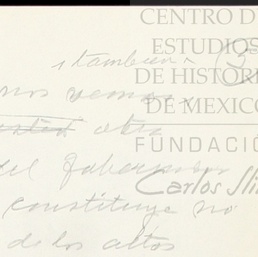 CENTRO D
ESTUDIOS
DE HISTOR
DE MEXICO
FUNDACIÓ
Carlos Sli
tambien
nos vemos
otra
del
constituye no
de los altos